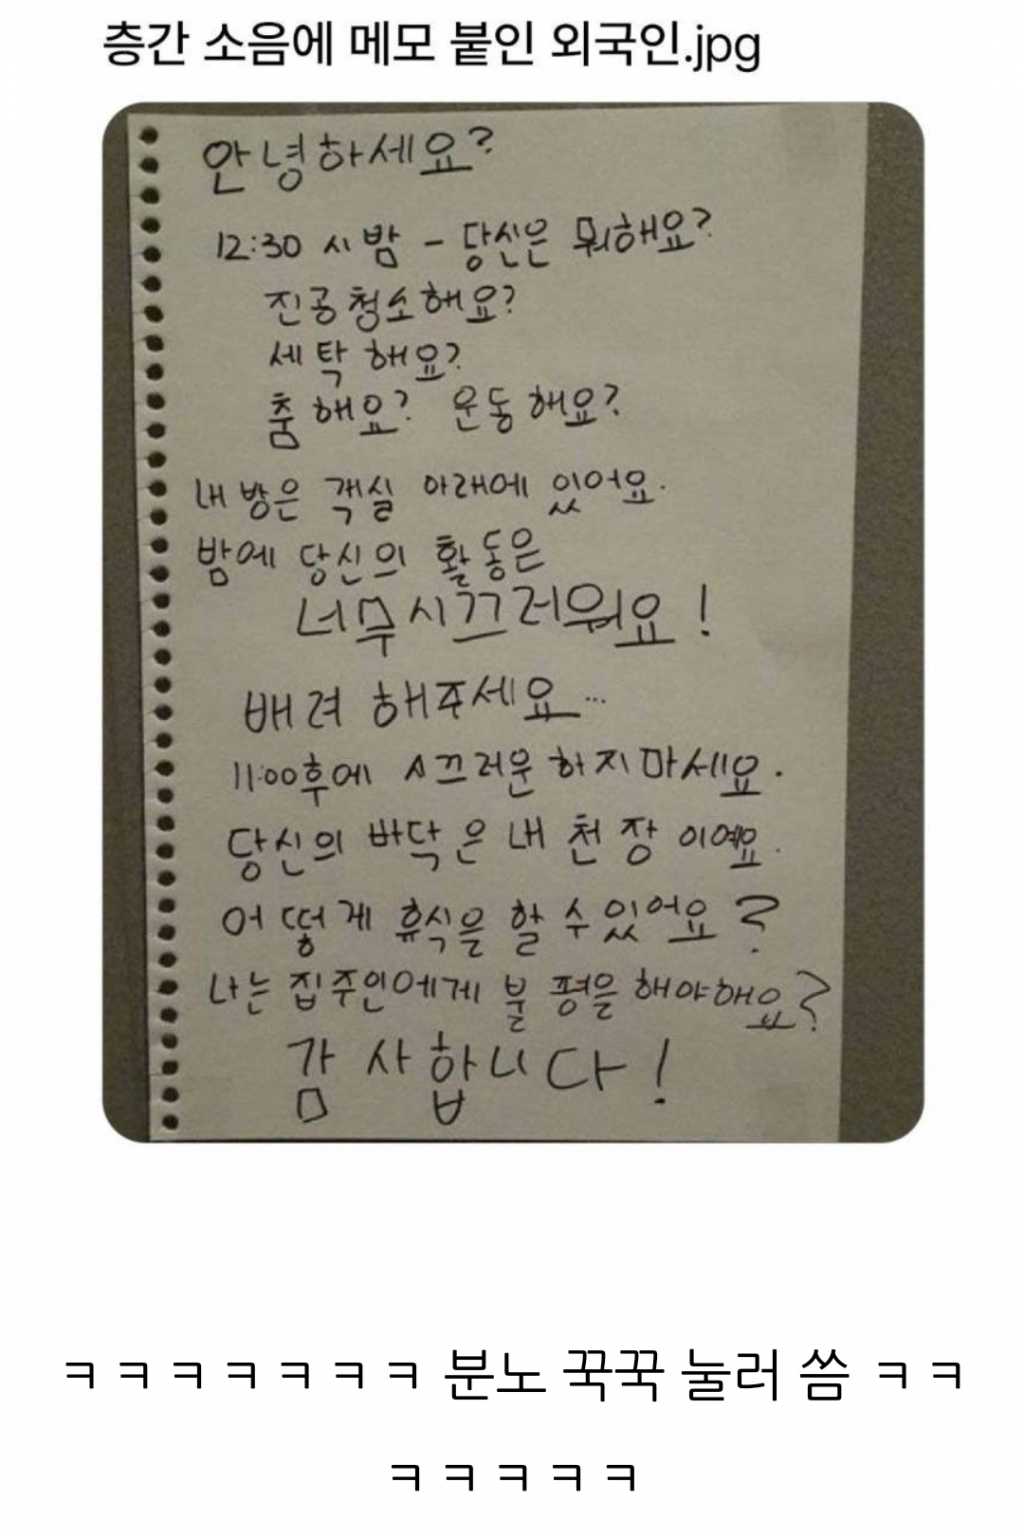 층간 소음에 메모 붙인 외국인.jpg
안녕하세요?
12:30 시 밤 - 당신은 뭐해요?
진공청소해요?
세탁해요?
춤해요? 운동해요?
내 방은 객실 아래에 있어요.
밤에 당신의 활동은
너무시끄러워요!
배려 해주세요...
11:00후에 시끄러운 하지마세요.
당신의 바닥은 내 천장이예요.
어떻게 휴식을 할 수 있어요?
나는 집주인에게 불평을 해야해요?
감사합니다!
ㅋㅋㅋㅋㅋㅋㅋ 분노 꾹꾹 눌러 씀 ㅋㅋ
ㅋㅋㅋㅋㅋ